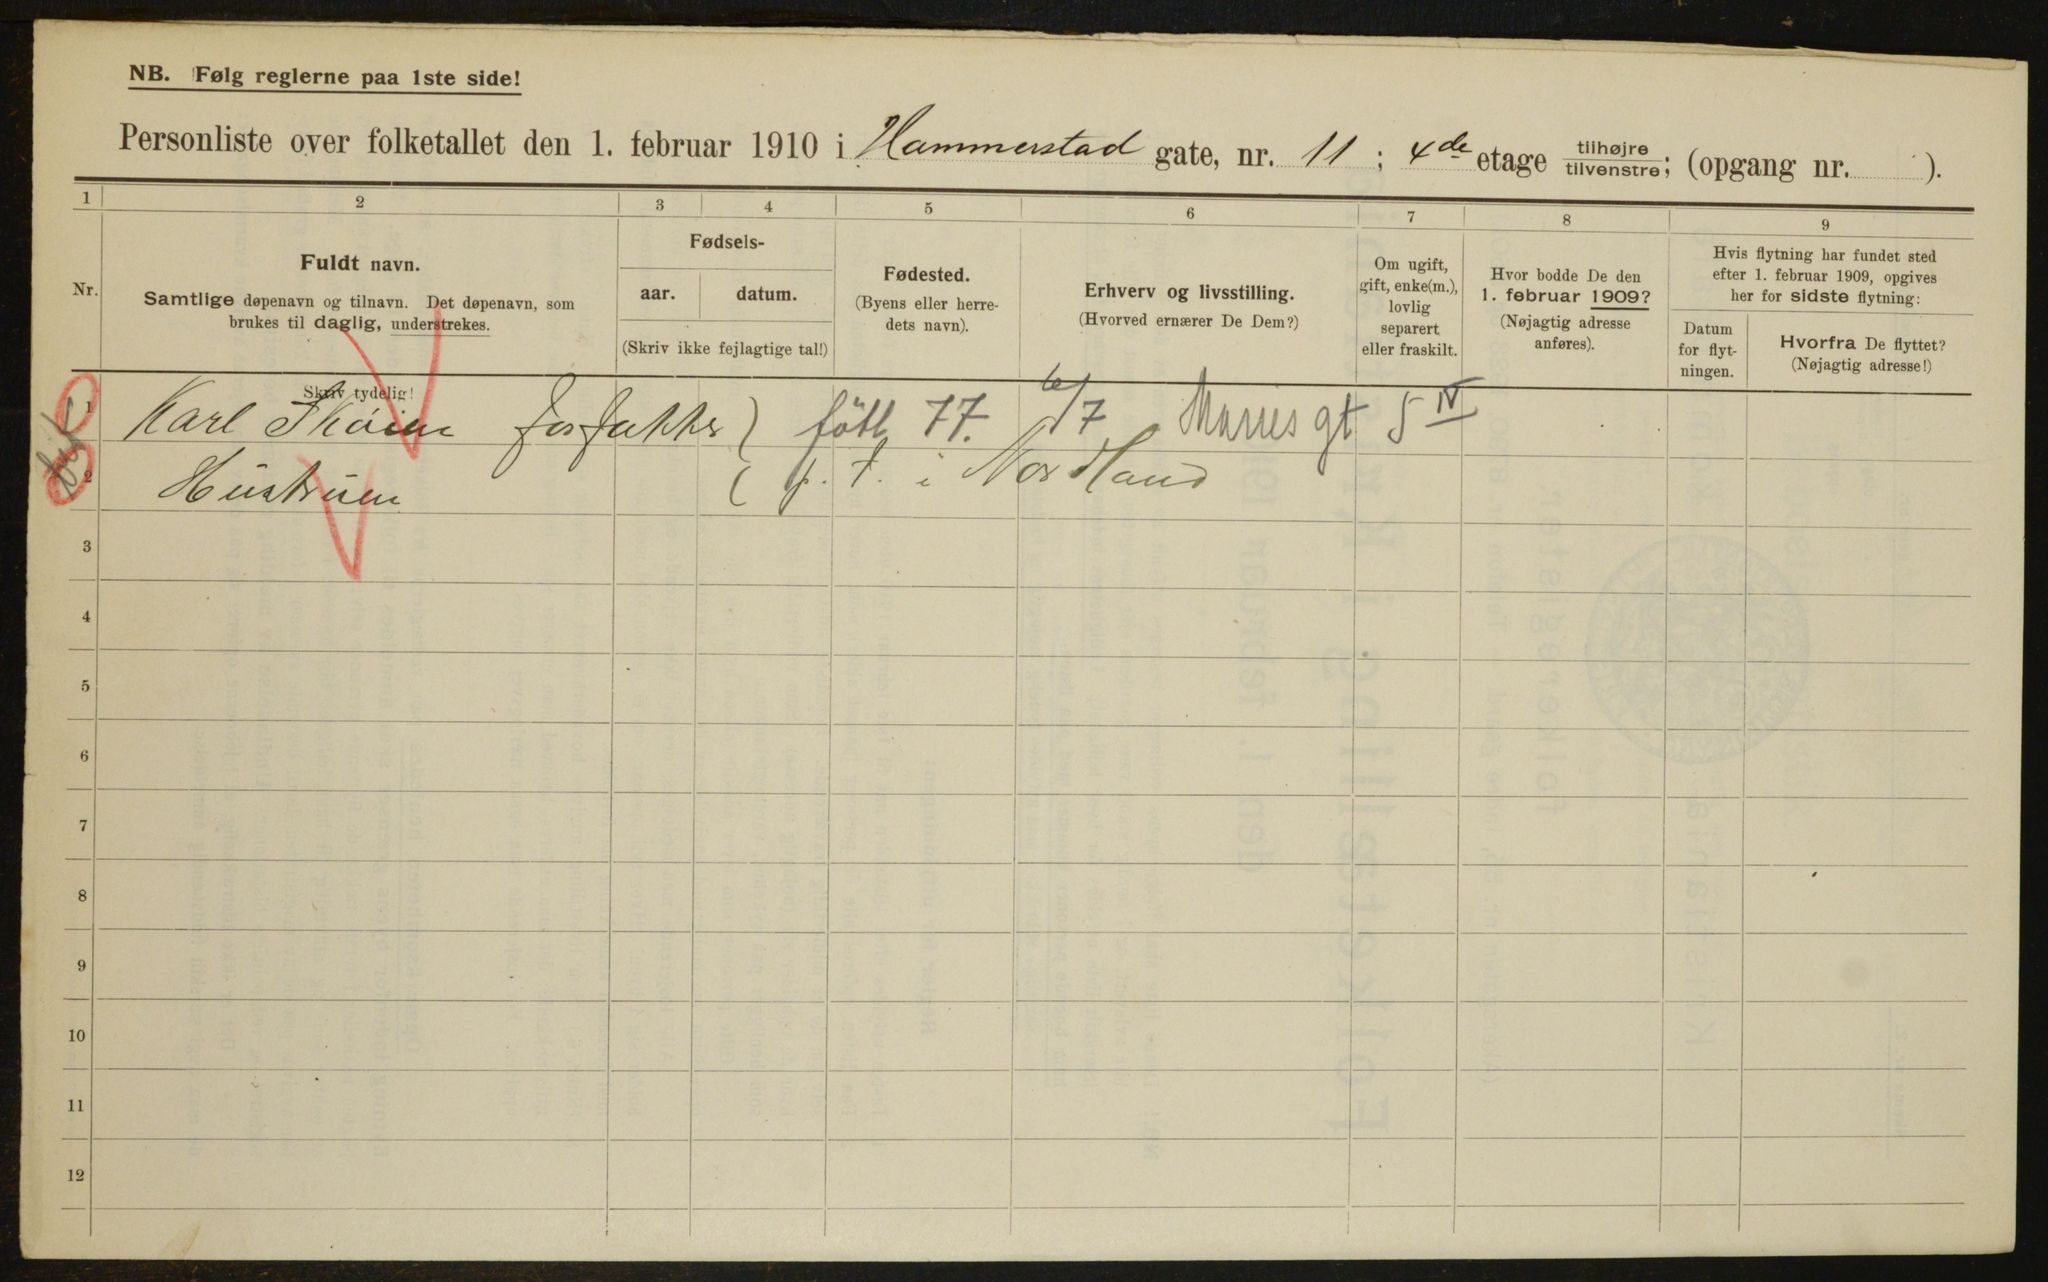 NB. Følg reglerne paa 1ste side!
Personliste over folketallet den 1. februar 1910 i Hammerstad gate, nr. 11; 4de etage tilhøjre/tilvenstre; (opgang nr. ).
1 2 3 4 5 6 7 8 9
Nr.
Fuldt navn.
Samtlige døpenavn og tilnavn. Det døpenavn, som
brukes til daglig, understrekes.
Skriv tydelig!
Fødsels-
aar. datum.
(Skriv ikke fejlagtige tal!)
Fødested.
(Byens eller herre-
dets navn).
Erhverv og livsstilling.
(Hvorved ernærer De Dem?)
Om ugift,
gift, enke(m.),
lovlig
separert
eller fraskilt.
Hvor bodde De den
1. februar 1909?
(Nøjagtig adresse
anføres).
Hvis flytning har fundet sted
efter 1. februar 1909, opgives
her for sidste flytning:
Datum
for flyt-
ningen.
Hvorfra De flyttet?
(Nøjagtig adresse!)
1 Karl Skøien ) født 77. 6/7 Maries gt 5 IV
2 Hustruen ( p. t. i Nordland
3
4
5
6
7
8
9
10
11
12